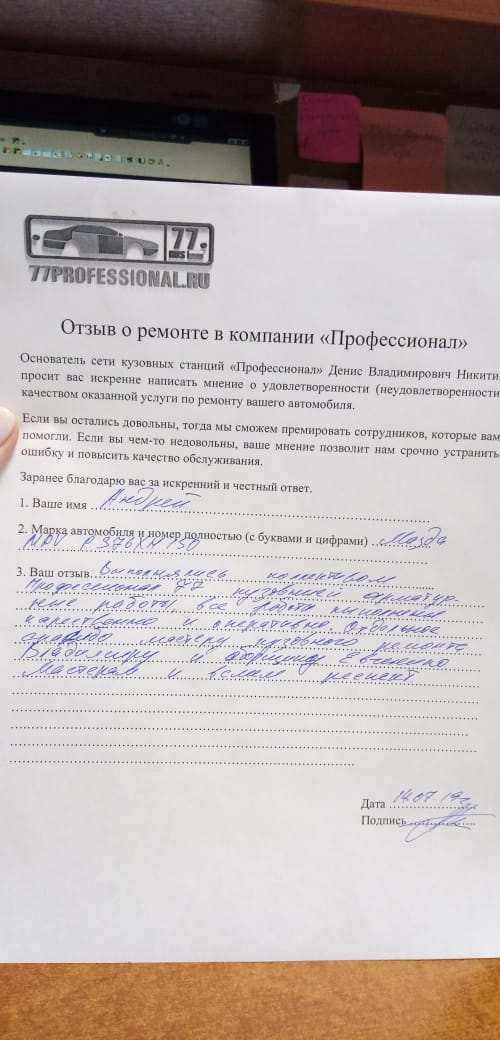 77.
77PROFESSIONAL.RU
Отзыв о ремонте в компании «Профессионал»
Основатель сети кузовных станций «Профессионал» Денис Владимирович Никити
просит вас искренне написать мнение о удовлетворенности (неудовлетворенности
качеством оказанной услуги по ремонту вашего автомобиля.
Если вы остались довольны, тогда мы сможем премировать сотрудников, которые вам
помогли. Если вы чем-то недовольны, ваше мнение позволит нам срочно устранить
ошибку и повысить качество обслуживания.
Заранее благодарю вас за искренний и честный ответ.
1. Ваше имя Андрей
2. Марка автомобиля и номер полностью (с буквами и цифрами) Мазда
MPV Р376ХН 150
3. Ваш отзыв. Выполнялись
Профессионал 77 кузовные арматур-
ные работы, все работы
качественно и оперативно. Отдельное
спасибо мастеру кузовного ремонта
Владимиру и Евгению
Мастерам и всем респект
Дата 14.07.19г.
Подпись